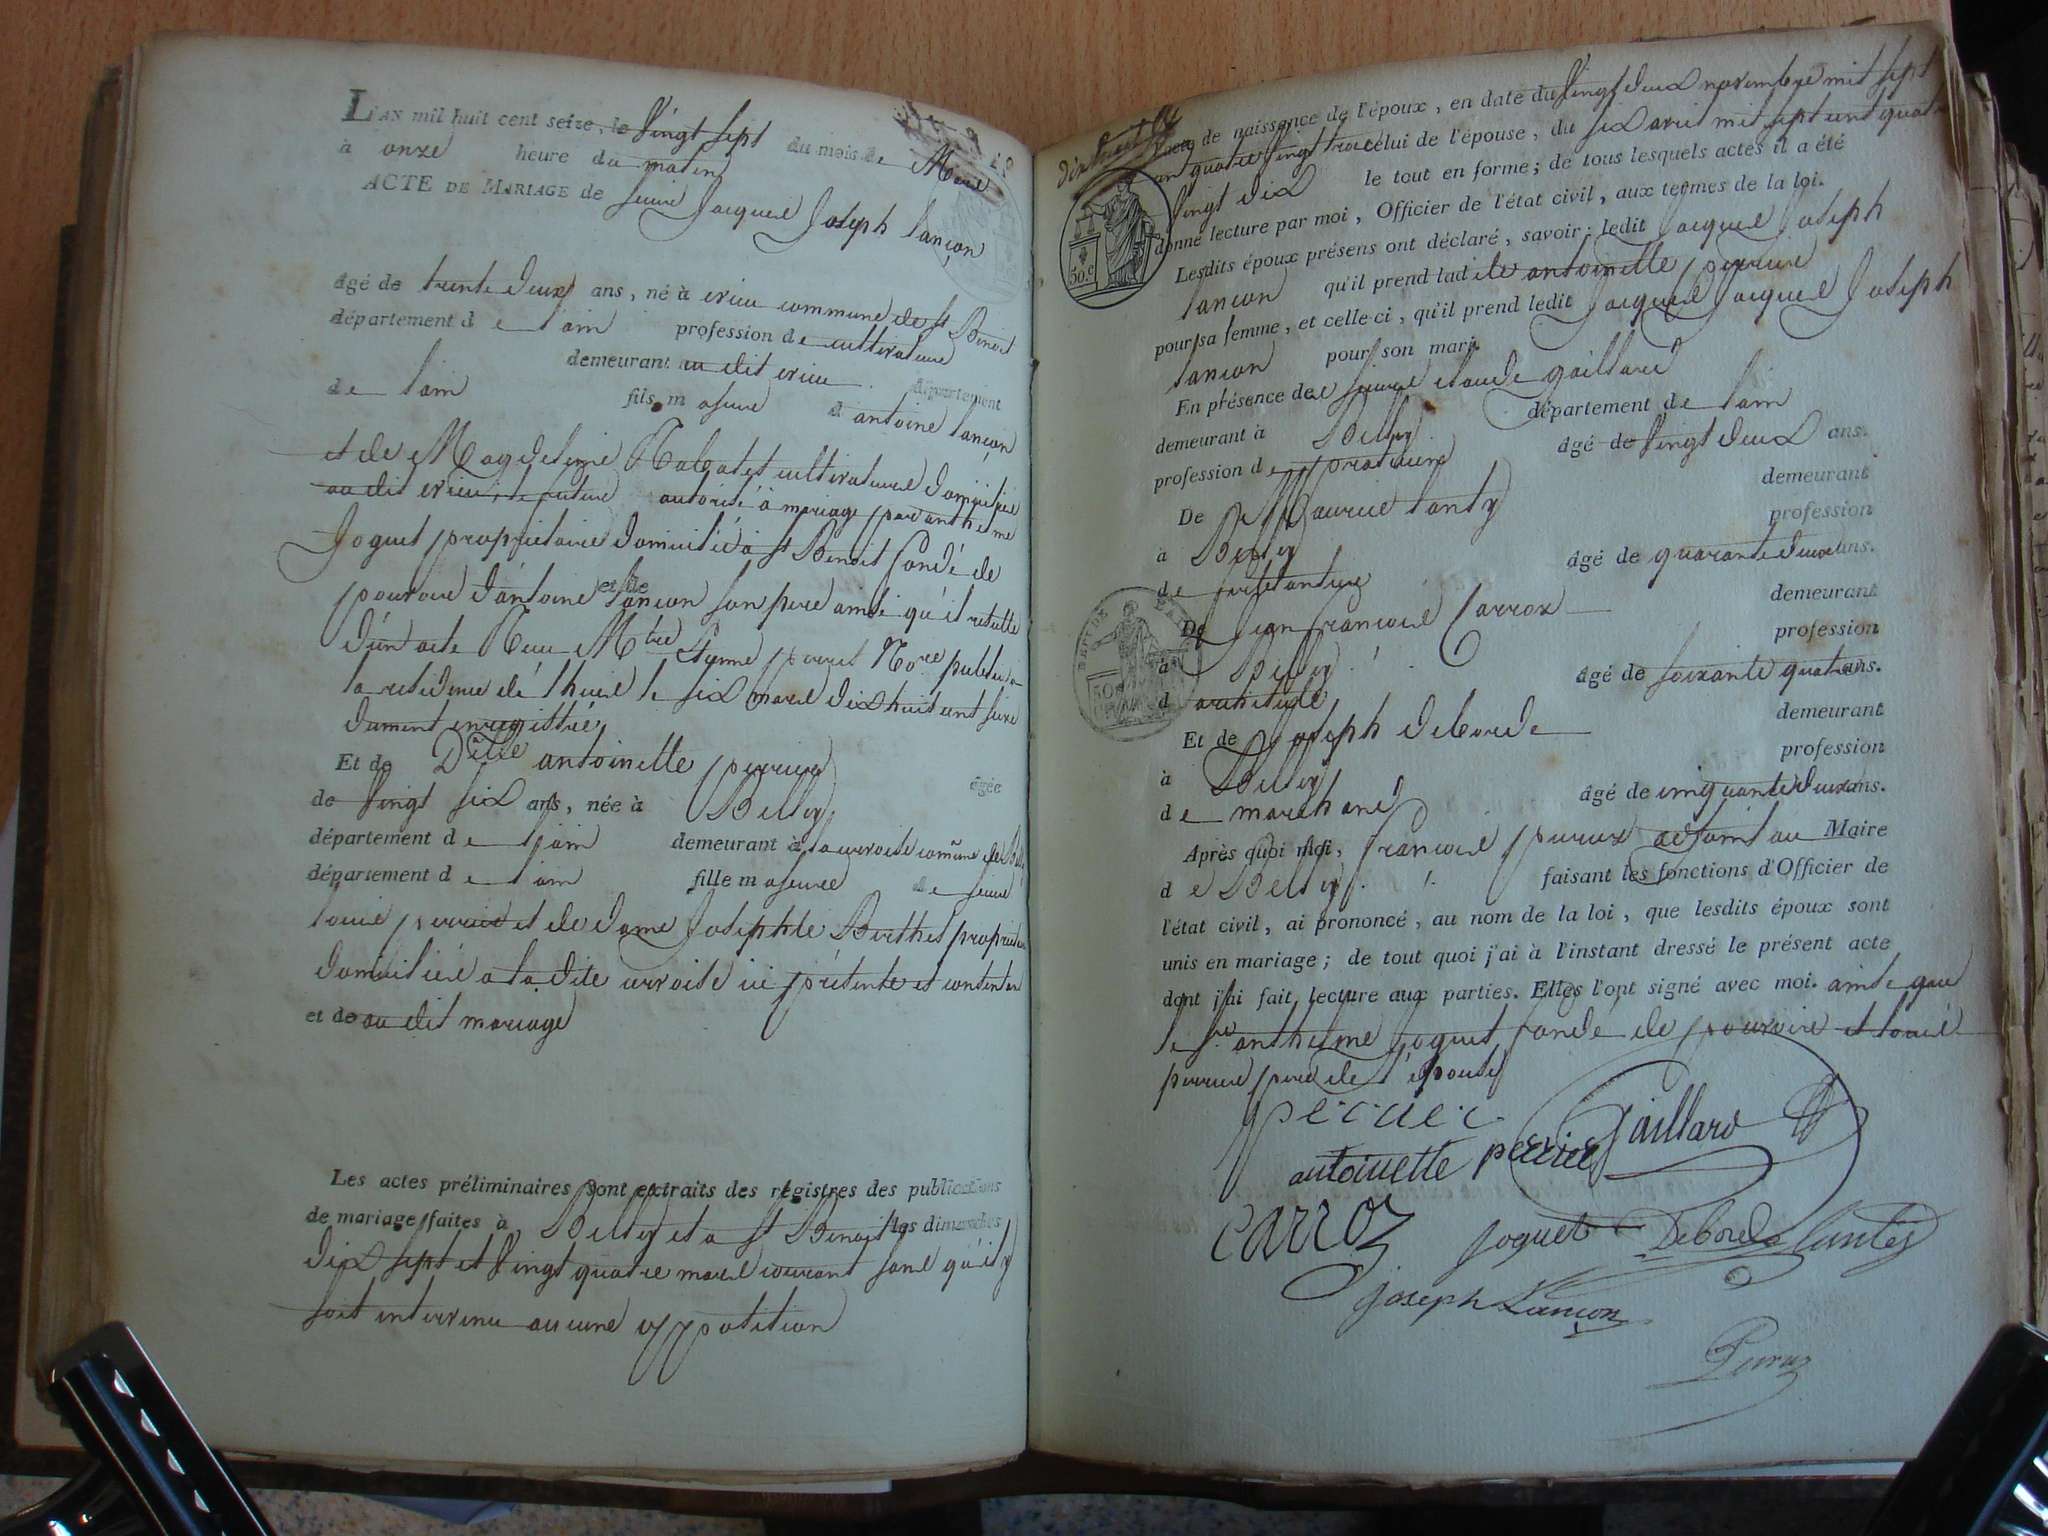 L'AN mil huit cent seize, le vingt sept du mois de Mars
à onze heure du matin
ACTE DE MARIAGE de sieur Jacques Joseph Lançon
âgé de trente deux ans, né à crieu commune de St Benoit
département de l'ain profession de cultivateur
demeurant au dit crieu département
de l'ain fils majeur d'antoine Lançon
et de Magdeleine cultivateurs domiciliés
au dit crieu, le futur autorisé à mariage par anthelme
Joguet propriétaire domicilié à St Benoit fondé de
pouvoir d'antoine Lançon son pere ainsi qu'il resulte
d'un acte Reçu Mtre perret Nore public a
la residence de l'huis le six mars dix huit cent seize
dument enregistré
Et de Dlle antoinette perrier âgée
de vingt six ans, née à Belley
département de l'ain demeurant à la corroite comune de Belley
département de l'ain fille majeure de sieur
Louis perrier et de dame Josephte Berthet propriétaires
domiciliés a la dite corroite ici présents et contentants
et de au dit mariage
Les actes préliminaires sont extraits des registres des publications
de mariage faites à Belley et a St Benoit les dimanches
dix sept et vingt quatre mars courant sans qu'il y
soit intervenu aucune opposition
acte de naissance de l'époux, en date du vingt deux novembre mil sept
cent quatre vingt trois celui de l'épouse, du six avril mil sept cent quatre
vingt dix le tout en forme; de tous lesquels actes il a été
donné lecture par moi, Officier de l'état civil, aux termes de la loi.
Lesdits époux présens ont déclaré, savoir: ledit Jacques Joseph
Lançon qu'il prend ladite antoinette perrier
pour sa femme, et celle-ci, qu'il prend ledit Jacques Jacques Joseph
Lançon pour son mari.
En présence de sieurs claude gaillard
demeurant à Belley département de l'ain
profession de praticien âgé de vingt deux ans.
De Maurice Lanty demeurant
à Belley profession
de âgé de quarante deux ans.
De Jean françois Carroz demeurant
à Belley profession
d'architecte âgé de soixante quatre ans.
Et de Joseph deborde demeurant
à Belley profession
de marchand âgé de cinquante deux ans.
Après quoi moi, françois peruz adjoint au Maire
de Belley faisant les fonctions d'Officier de
l'état civil, ai prononcé, au nom de la loi, que lesdits époux sont
unis en mariage; de tout quoi j'ai à l'instant dressé le présent acte
dont j'ai fait lecture aux parties. Elles l'ont signé avec moi. ainsi que
le sr anthelme Joguet fondé de pouvoir et Louis
perrier pere de l'épouse
perrier Gaillard
antoinette perrier
carroz Joguet Deborde Lantey
joseph Lançon
Peruz